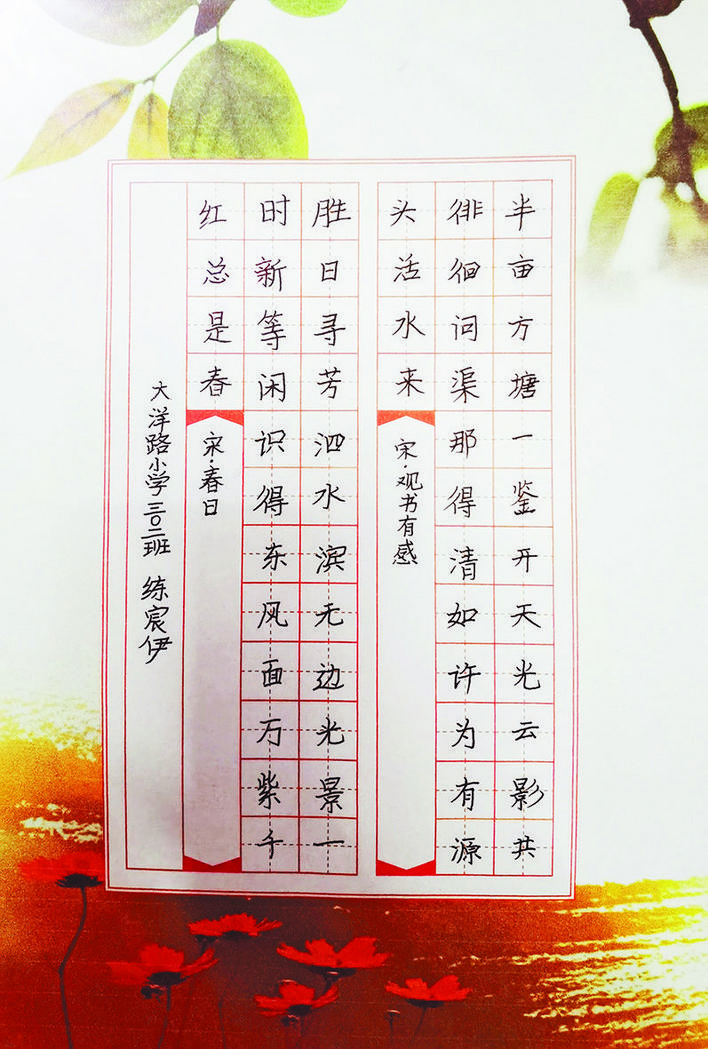 半亩方塘一鉴开天光云影共
徘徊问渠那得清如许为有源
头活水来
宋·观书有感
胜日寻芳泗水滨无边光景一
时新等闲识得东风面万紫千
红总是春
宋·春日
大洋路小学三〇二班 练宸伊